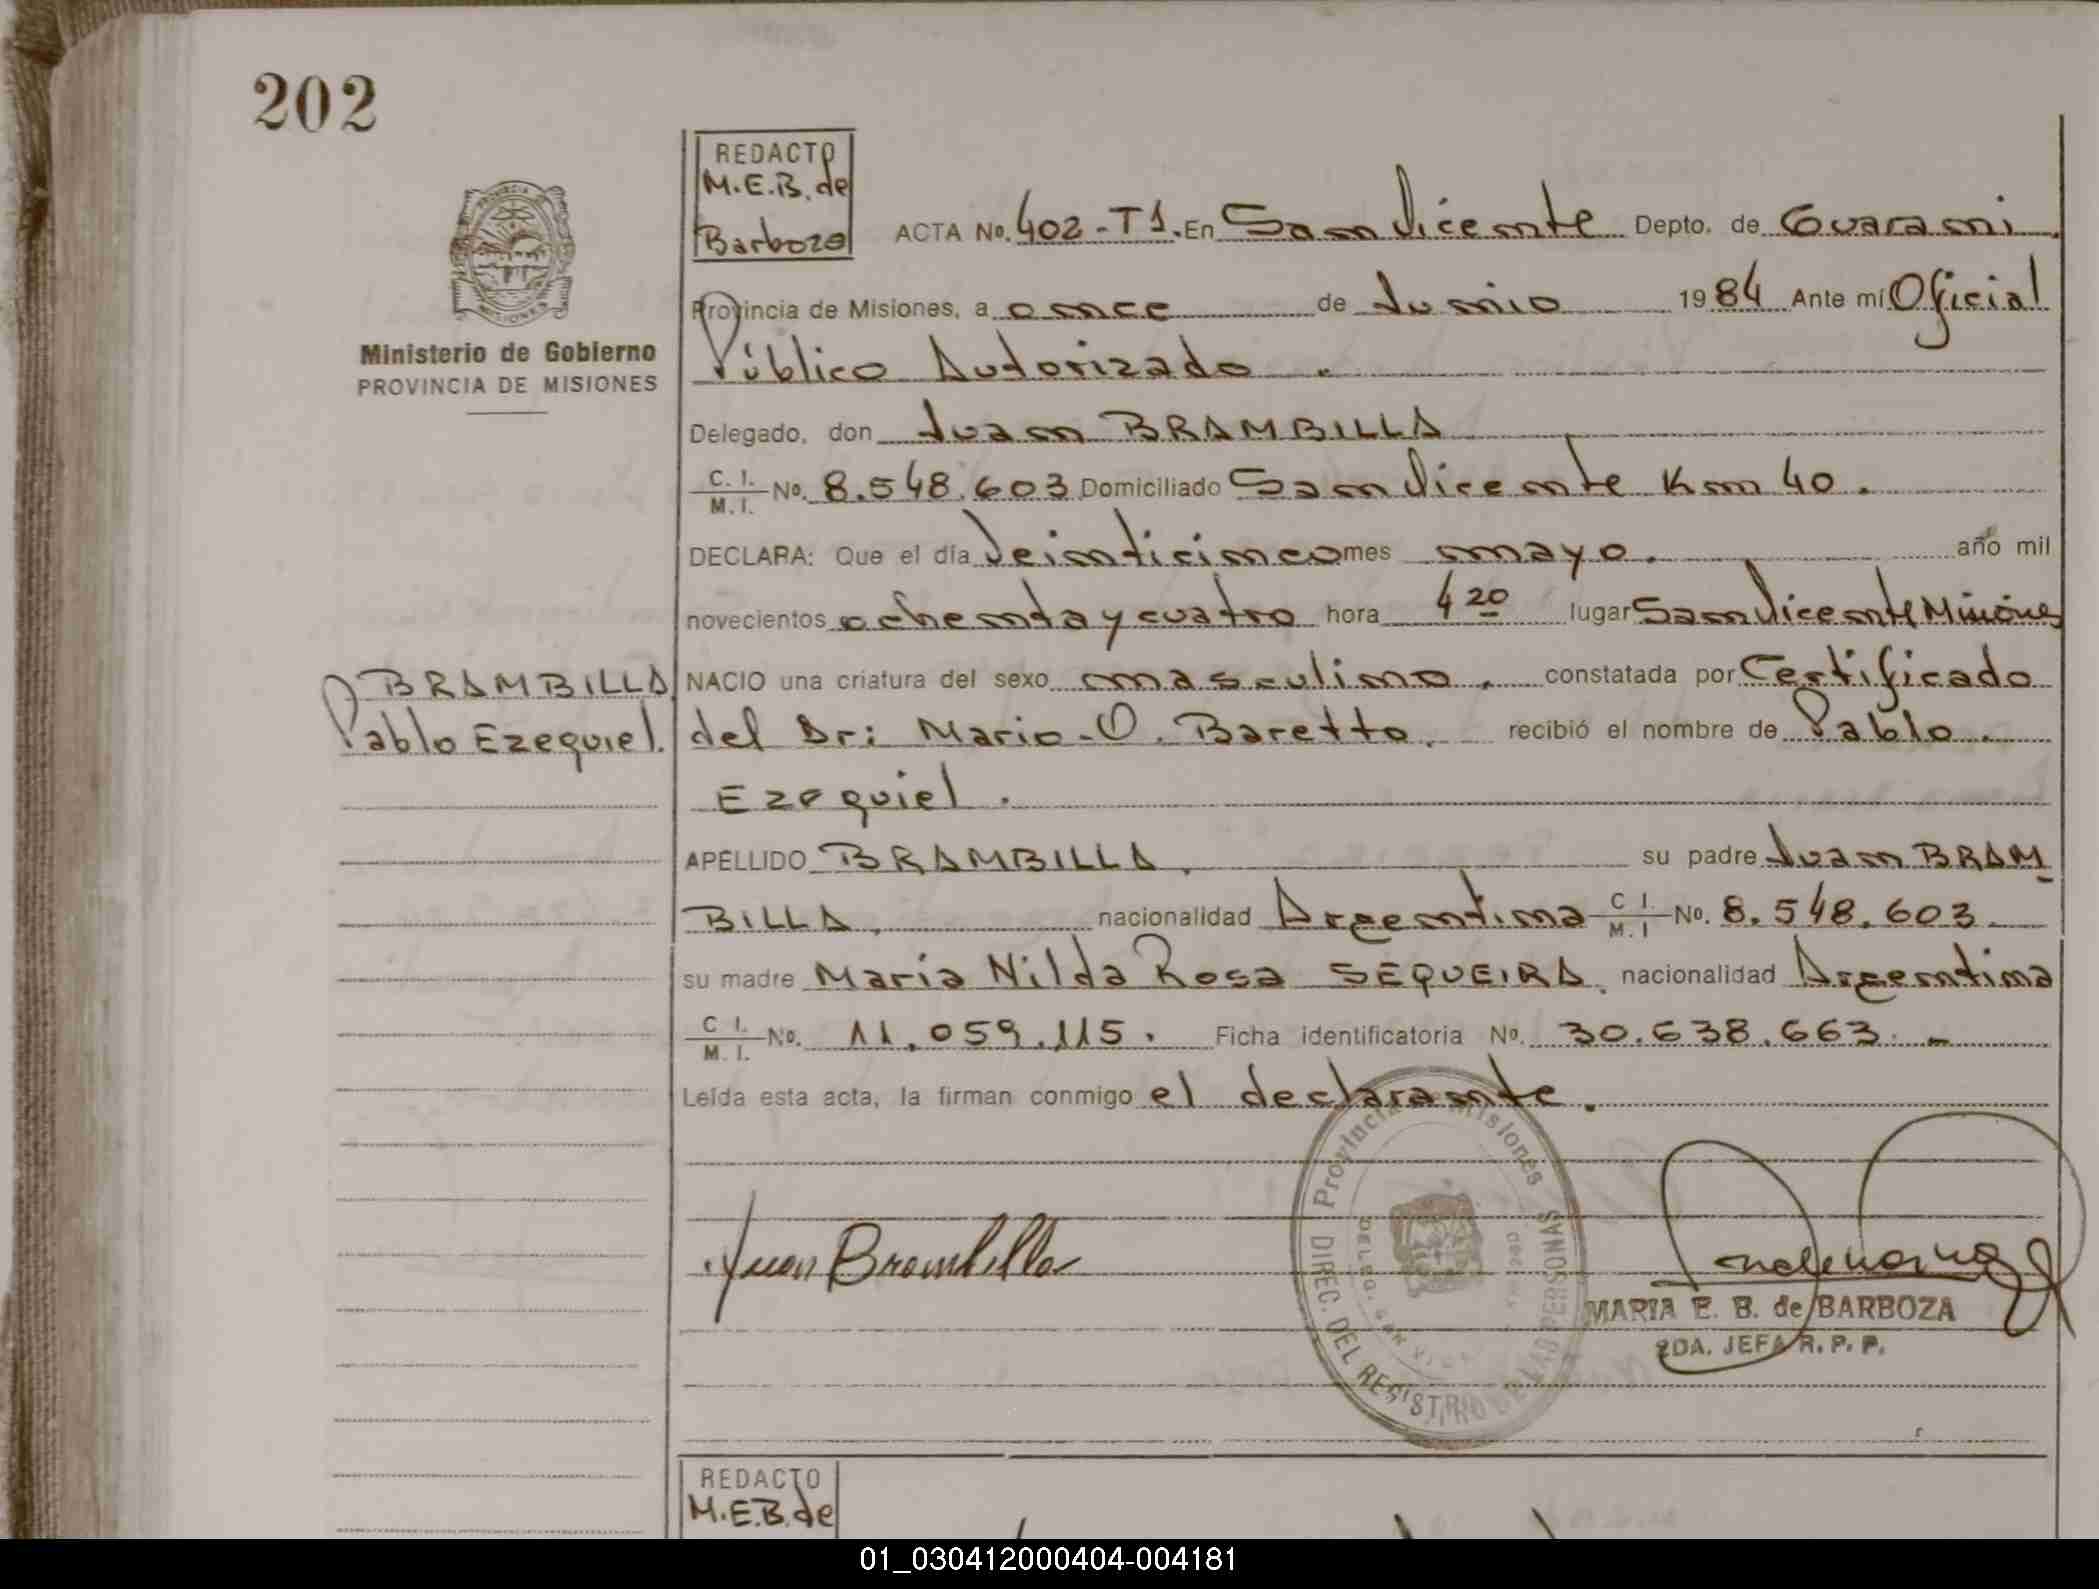 202
REDACTO
M.E.B. de
Barboza
ACTA No. 402-T1. En San Vicente Depto. de Guarani.
Provincia de Misiones, a once de Junio 1984 Ante mí Oficial
Público Autorizado.
Ministerio de Gobierno
PROVINCIA DE MISIONES
Delegado, don Juan BRAMBILLA
C. I. / M. I. No. 8.548.603 Domiciliado San Vicente Km 40.
DECLARA: Que el día Veinticinco mes mayo. año mil
novecientos ochenta y cuatro hora 4 20 lugar San Vicente Misiones
NACIO una criatura del sexo masculino, constatada por Certificado
del Dr: Mario O. Baretto. recibió el nombre de Pablo.
Ezequiel.
BRAMBILLA
Pablo Ezequiel.
APELLIDO BRAMBILLA, su padre Juan BRAM
BILLA, nacionalidad Argentina C I. / M. I No. 8.548.603
su madre Maria Nilda Rosa SEQUEIRA, nacionalidad Argentina
C I. / M. I. No. 11.059.115. Ficha identificatoria No. 30.638.663.-
Leída esta acta, la firman conmigo el declarante.
Juan Brambilla
Provincia Misiones
DIREC. DEL REGISTRO DE LAS PERSONAS
MARIA E. B. de BARBOZA
2DA. JEFA R. P. P.
REDACTO
M.E.B. de
01_030412000404-004181